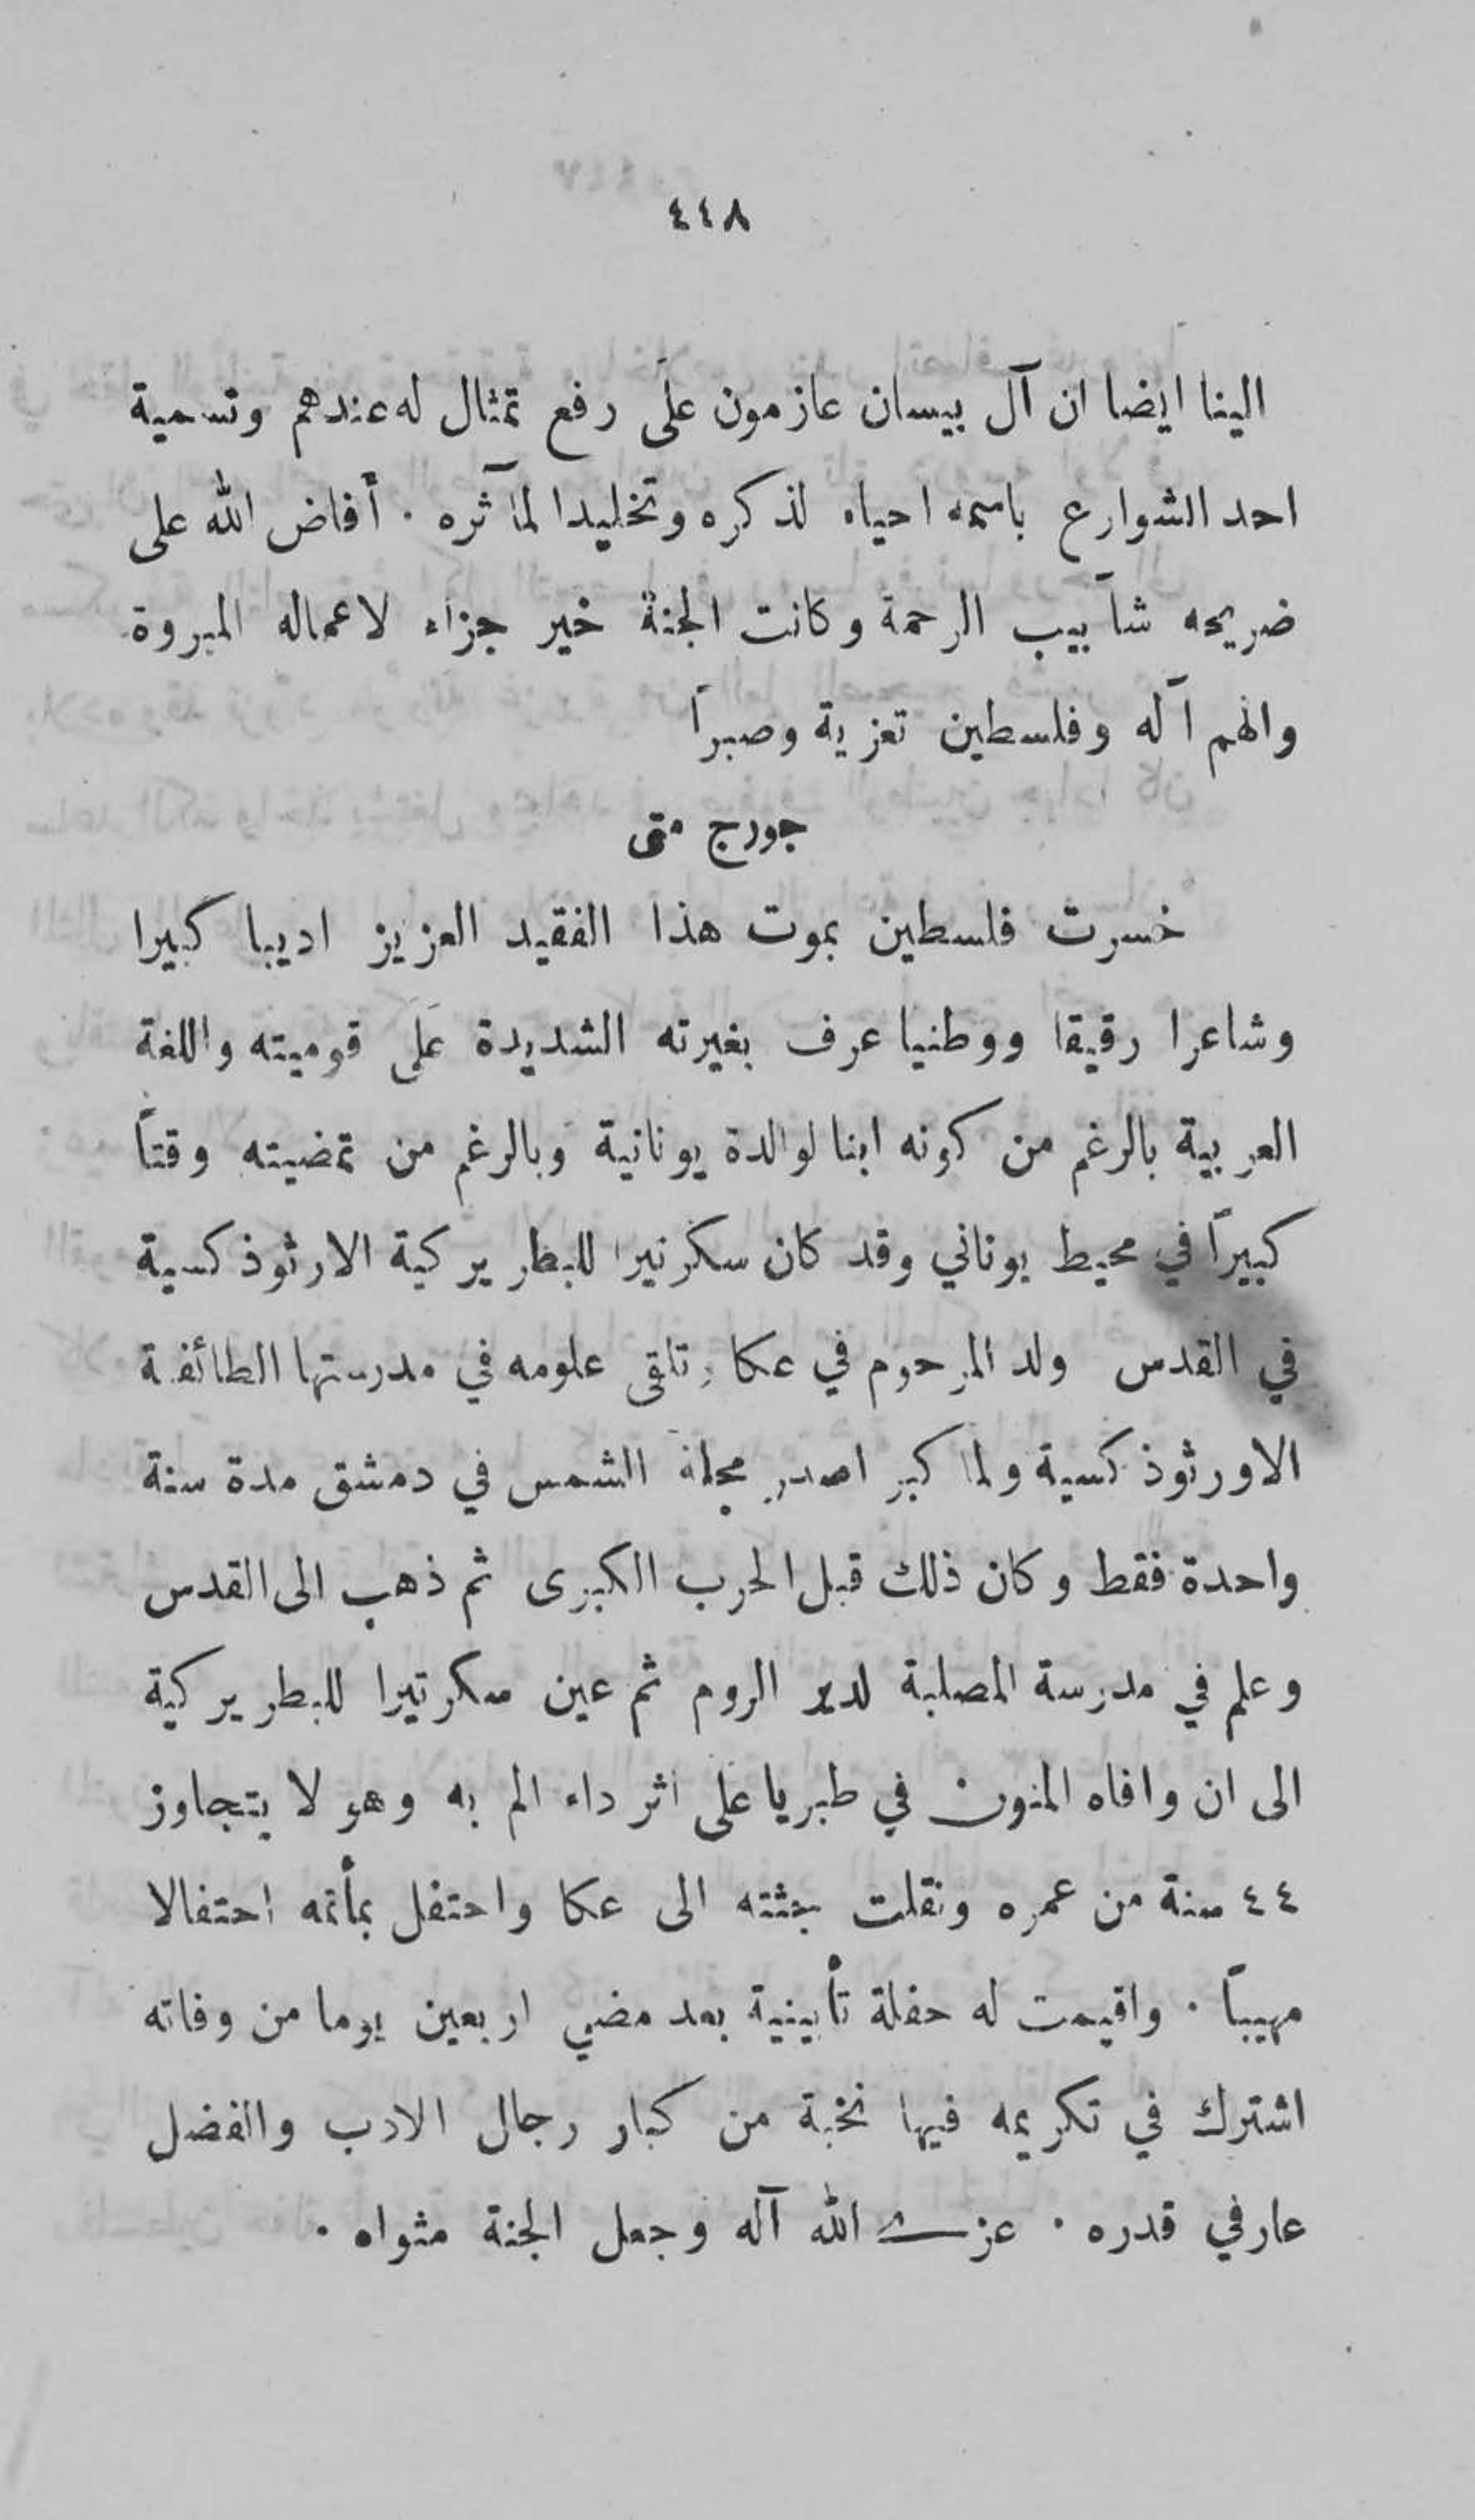 ٤٤٨
الينا ايضا ان آل بيسان عازمون على رفع تمثال له عندهم وتسمية
احد الشوارع باسمه احياء لذكره وتخليدا لمآثره . أفاض الله على
ضريحه شآبيب الرحمة وكانت الجنة خير جزاء لاعماله المبروة
والهم آله وفلسطين تعزية وصبراً
جورج متى
خسرت فلسطين بموت هذا الفقيد العزيز اديبا كبيرا
وشاعرا رقيقا ووطنيا عرف بغيرته الشديدة على قوميته واللغة
العربية بالرغم من كونه ابنا لوالدة يونانية وبالرغم من تمضيته وقتاً
كبيراً في محيط يوناني وقد كان سكرتيرا للبطريركية الارثوذكسية
في القدس ولد المرحوم في عكا وتلقى علومه في مدرستها الطائفية
الاورثوذكسية ولما كبر اصدر مجلة الشمس في دمشق مدة سنة
واحدة فقط وكان ذلك قبل الحرب الكبرى ثم ذهب الى القدس
وعلم في مدرسة المصلبة لدير الروم ثم عين سكرتيرا للبطريركية
الى ان وافاه المنون في طبريا على اثر داء الم به وهو لا يتجاوز
٤٤ سنة من عمره ونقلت جثته الى عكا واحتفل بمأتمه احتفالا
مهيباً . واقيمت له حفلة تأبينية بعد مضي اربعين يوما من وفاته
اشترك في تكريمه فيها نخبة من كبار رجال الادب والفضل
عارفي قدره . عزى الله آله وجعل الجنة مثواه .